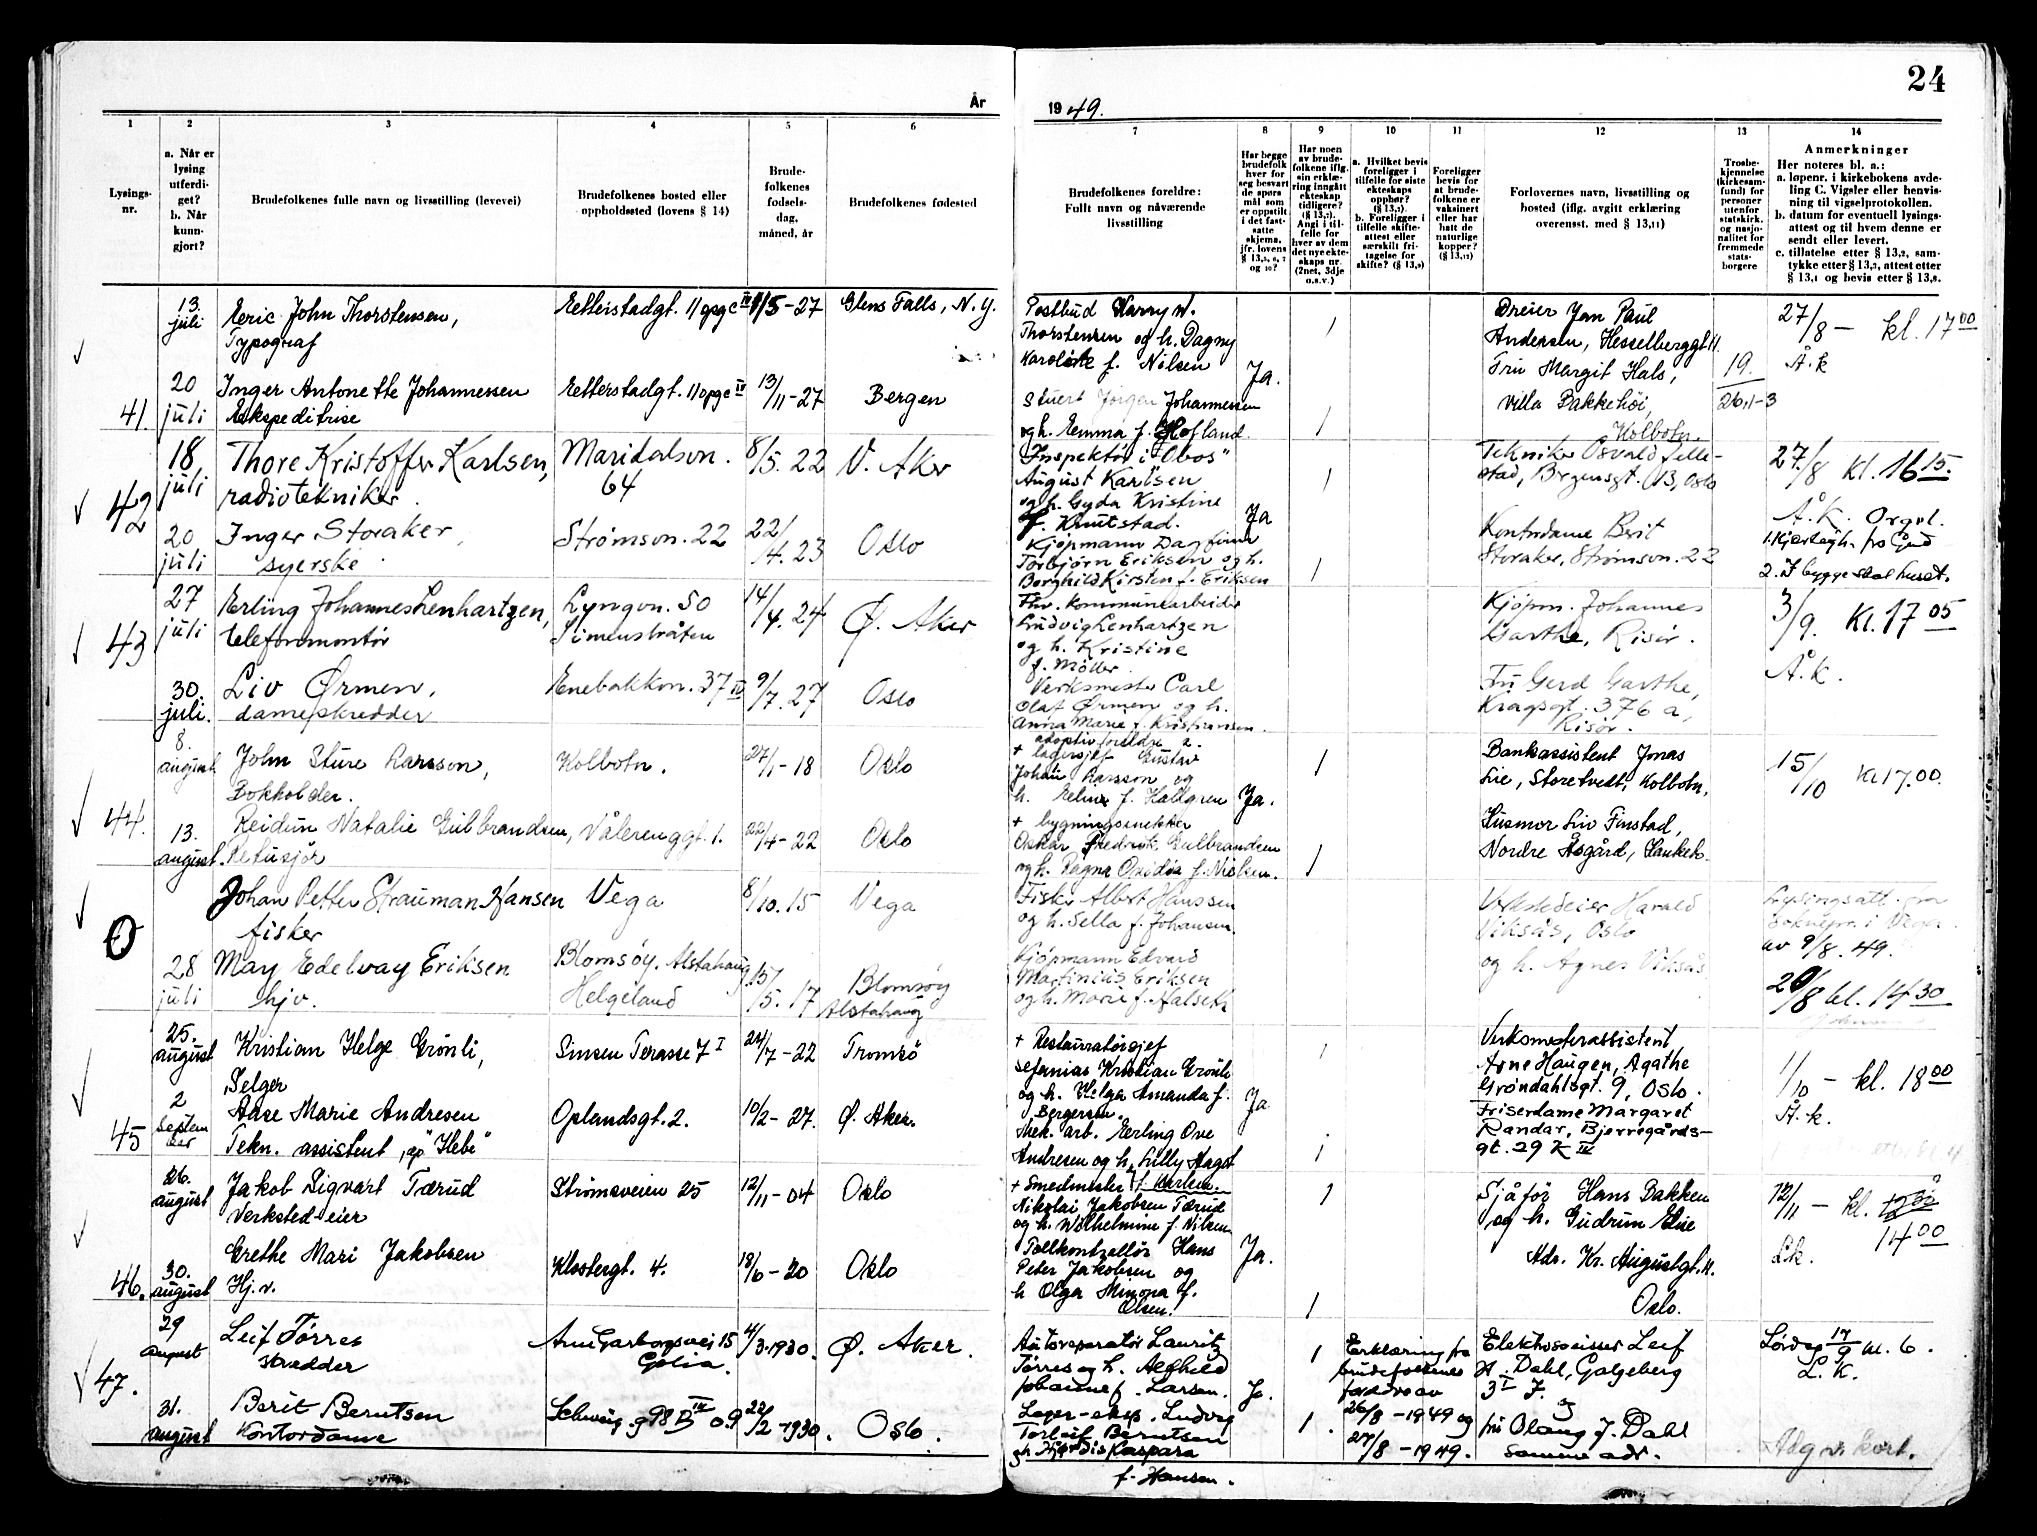 24
År
19 49.
1
2
3
4
5
6
7
8
9
10
11
12
13
14
Lysings-
nr.
a. Når er
lysing
utferdi-
get?
b. Når
kunn-
gjort?
Brudefolkenes fulle navn og livsstilling (levevei)
Brudefolkenes bosted eller
oppholdssted (lovens § 14)
Brude-
folkenes
fødsels-
dag,
måned, år
Brudefolkenes fødested
Brudefolkenes foreldre:
Fullt navn og nåværende
livsstilling
Har begge
brudefolk
hver for
seg besvart
de spørs
mål som
er oppstilt
i det fast-
satte
skjema,
jfr. lovens
Har noen
av brude-
folkene iflg.
sin erklæ-
ring inngått
ekteskap
tidligere?
(§ 13,2).
Angi i til-
felle for
hver av dem
det nye ekte-
skaps nr.
(2net, 3dje
o.s.v.)
a. Hvilket bevis
foreligger i
tilfelle for siste
ekteskaps
opphør?
b. Foreligger i
tilfelle skifte-
attest eller
særskilt fri-
tagelse for
skifte? (§ 13,9)
Foreligger
bevis for
at brude-
folkene er
vaksinert
eller har
hatt de
naturlige
kopper?
(§ 13,12)
Forlovernes navn, livsstilling og
bosted (iflg. avgitt erklæring
overensst. med § 13,11)
Trosbe-
kjennelse
(kirkesam-
fund) for
personer
utenfor
statskirk.
og nasjo-
nalitet for
fremmede
stats-
borgere
Anmerkninger
Her noteres bl. a.:
a. løpenr. i kirkebokens avde-
ling C. Vigsler eller henvis-
ning til vigselprotokollen.
b. datum for eventuell lysings-
attest og til hvem denne er
sendt eller levert.
c. tillatelse etter § 13,2, sam-
tykke etter § 13,3, attest etter
§ 13,4 og bevis etter § 13,8.
41.
13.
juli
Eric John Thorstensen,
Typograf
Etterstadgt. 11 opg c IV
-27
Glens Falls, N.Y.
Postbud Harry W.
Thorstensen og h. Dagny
f. Nilsen
1
Ja.
Dreier Jan Paul
Andersen, Hesselberggt.
27/8 - kl. 17 00
Å.k
20
juli
Inger Antonette Johannessen
Ekspeditrise
Etterstadgt. 11 opg c IV
13/11-27
Bergen
Stuert Jørgen Johannessen
og h. Emma f. Hofland
1
Fru Margit Hals,
Villa Bakkehøi,
Kolbotn.
19.
26.11-3
42
18.
juli
Thore Kristoffer Karlsen,
radiotekniker.
Maridalsvn.
64
8/5. 22
V. Aker
Inspektør i "Obos"
August Karlsen
og h. Gyda Kristine
f. Knutstad.
1
Ja
Tekniker Osvald Felle-
stad, 13, Oslo
27./8 Kl. 16 15.
Å.K. Orgel.
20
juli
Inger Storaker,
syerske.
Strømsvn. 22
22/4. 23
Oslo
Kjøpmann Dagfinn
Torbjørn Eriksen og h.
Borghild Kirsten f. Eriksen
1
Kontordame Berit
Storaker, Strømsvn. 22
1. Kjærlighet fra Gud
2. I bygge skal huset.
43
27
juli
Erling Johannes Lenhartzen,
telefonmontør
Lyngvn. 50
Simenstråten
14/4. 24
Ø. Aker
Fhv. kommunearbeider
Ludvig Lenhartzen
og h. Kristine
f. Möller.
Kjøpm. Johannes
Garthe, Risør.
3/9. Kl. 17 05
Å.k.
30.
juli.
Liv Ørmen,
dameskredder
Enebakkvn. 37 IV
9/7. 27
Oslo
Verksmester Carl
Olaf Ørmen og h.
Anna Marie f. Kristiansen.
Fru Gerd Garthe,
Kragsgt. 376 a,
Risør.
44.
8.
august
John Sture Larsson,
Bokholder.
Kolbotn.
27/1-18
Oslo
adoptivforeldre
+ lagersjef Gustav
Johan Larsson og
h. Elin f. Hallgren
1
Ja.
Bankassistent Jonas
Lie, Storetvedt, Kolbotn,
15/10 Kl 17.00.
13.
august.
Reidun Natalie Gulbrandsen,
Retusjør
Vålerenggt. 1.
22/4-22
Oslo
+ bygningssnekker
Oskar Fredrik Gulbrandsen
og h. Ragna f. Nielsen.
1
Husmor Liv Finstad,
Nordre Åsgård,
0
Johan Petter Strauman Hansen
fisker
Vega
8/10. 15
Vega
Fisker Albert Hanssen
og h. Sella f. Johansen.
Verkstedeier Harald
Viksås, Oslo
Lysingsatt. fra
soknepr. i Vega
av 9/8. 49.
28
juli
May Edelvay Eriksen
hjv.
Blomsöy, Alstahaug
Helgeland
15/5. 17
Blomsöy
Alstahaug
Kjøpmann Edvard
Martinius Eriksen
og h. Marie f. Halseth
og h. Agnes Viksås
20/8 kl. 14 30
45
25.
august
Kristian Helge Grønli,
Selger
Sinsen Terasse 7 I
24/7-22
Tromsö
+ Restauratørsjef
Kristian Grønli
og h. Helga Amanda f.
Bergersen.
Ja
Verksmesterassistent
Arne Haugen, Agathe
Grøndahlsgt. 9, Oslo.
1/10 - kl. 18 00
Å.k.
2
septem
ber
Aase Marie Andresen
Tekn. assistent, på "Hebe"
Oplandsgt. 2.
10/2-27.
Ø. Aker.
Mek. arb. Erling Ove
Andresen og h. Lilly Aagot
f. Karlsen.
1
Friserdame Margaret
Randar, Bjerregårds-
gt. 29 K IV
46.
26.
august
Jakob Sigvart Tærud
Verksted-eier
Strømsveien 25
12/11-04
Oslo
+ Smedmester
Nikolai Jakobsen Tærud
og h. Wilhelmine f. Nilsen
1
Ja.
Sjåfør Hans Bakken
og h. Gudrun Elise
12/11 - kl.
14 00
30.
august
Grethe Mari Jakobsen
Hj.v.
Klostergt. 4.
18/6-20
Oslo
Tollkontrollør Hans
Peter Jakobsen og
h Olga Minona f.
Olsen.
1
Adr. Kr. Augustgt.
Oslo.
47.
29
august
Leif Tørres
skredder
Arne Garborgsvei 15
4/3-1930.
Ø. Aker.
Autoreparatør Lauritz
Tørres og h. Alfhild
f. Larsen.
1
Ja.
Erklæring fra
brudefolkenes
foreldre av
26/8-1949 og
27/8-1949.
Elektrosveiser Leif
H. Dahl, Galgeberg
3 I 7.
og
Lørdag 17/9 kl. 6.
L.K.
31.
august
Berit Berntsen
Kontordame
22/2-1930.
Oslo.
Lager-eksp. Ludvig
Torleif Berntsen
og Hjørdis Kaspara
f. Hansen.
1.
fru Olaug J. Dahl
samme adr.